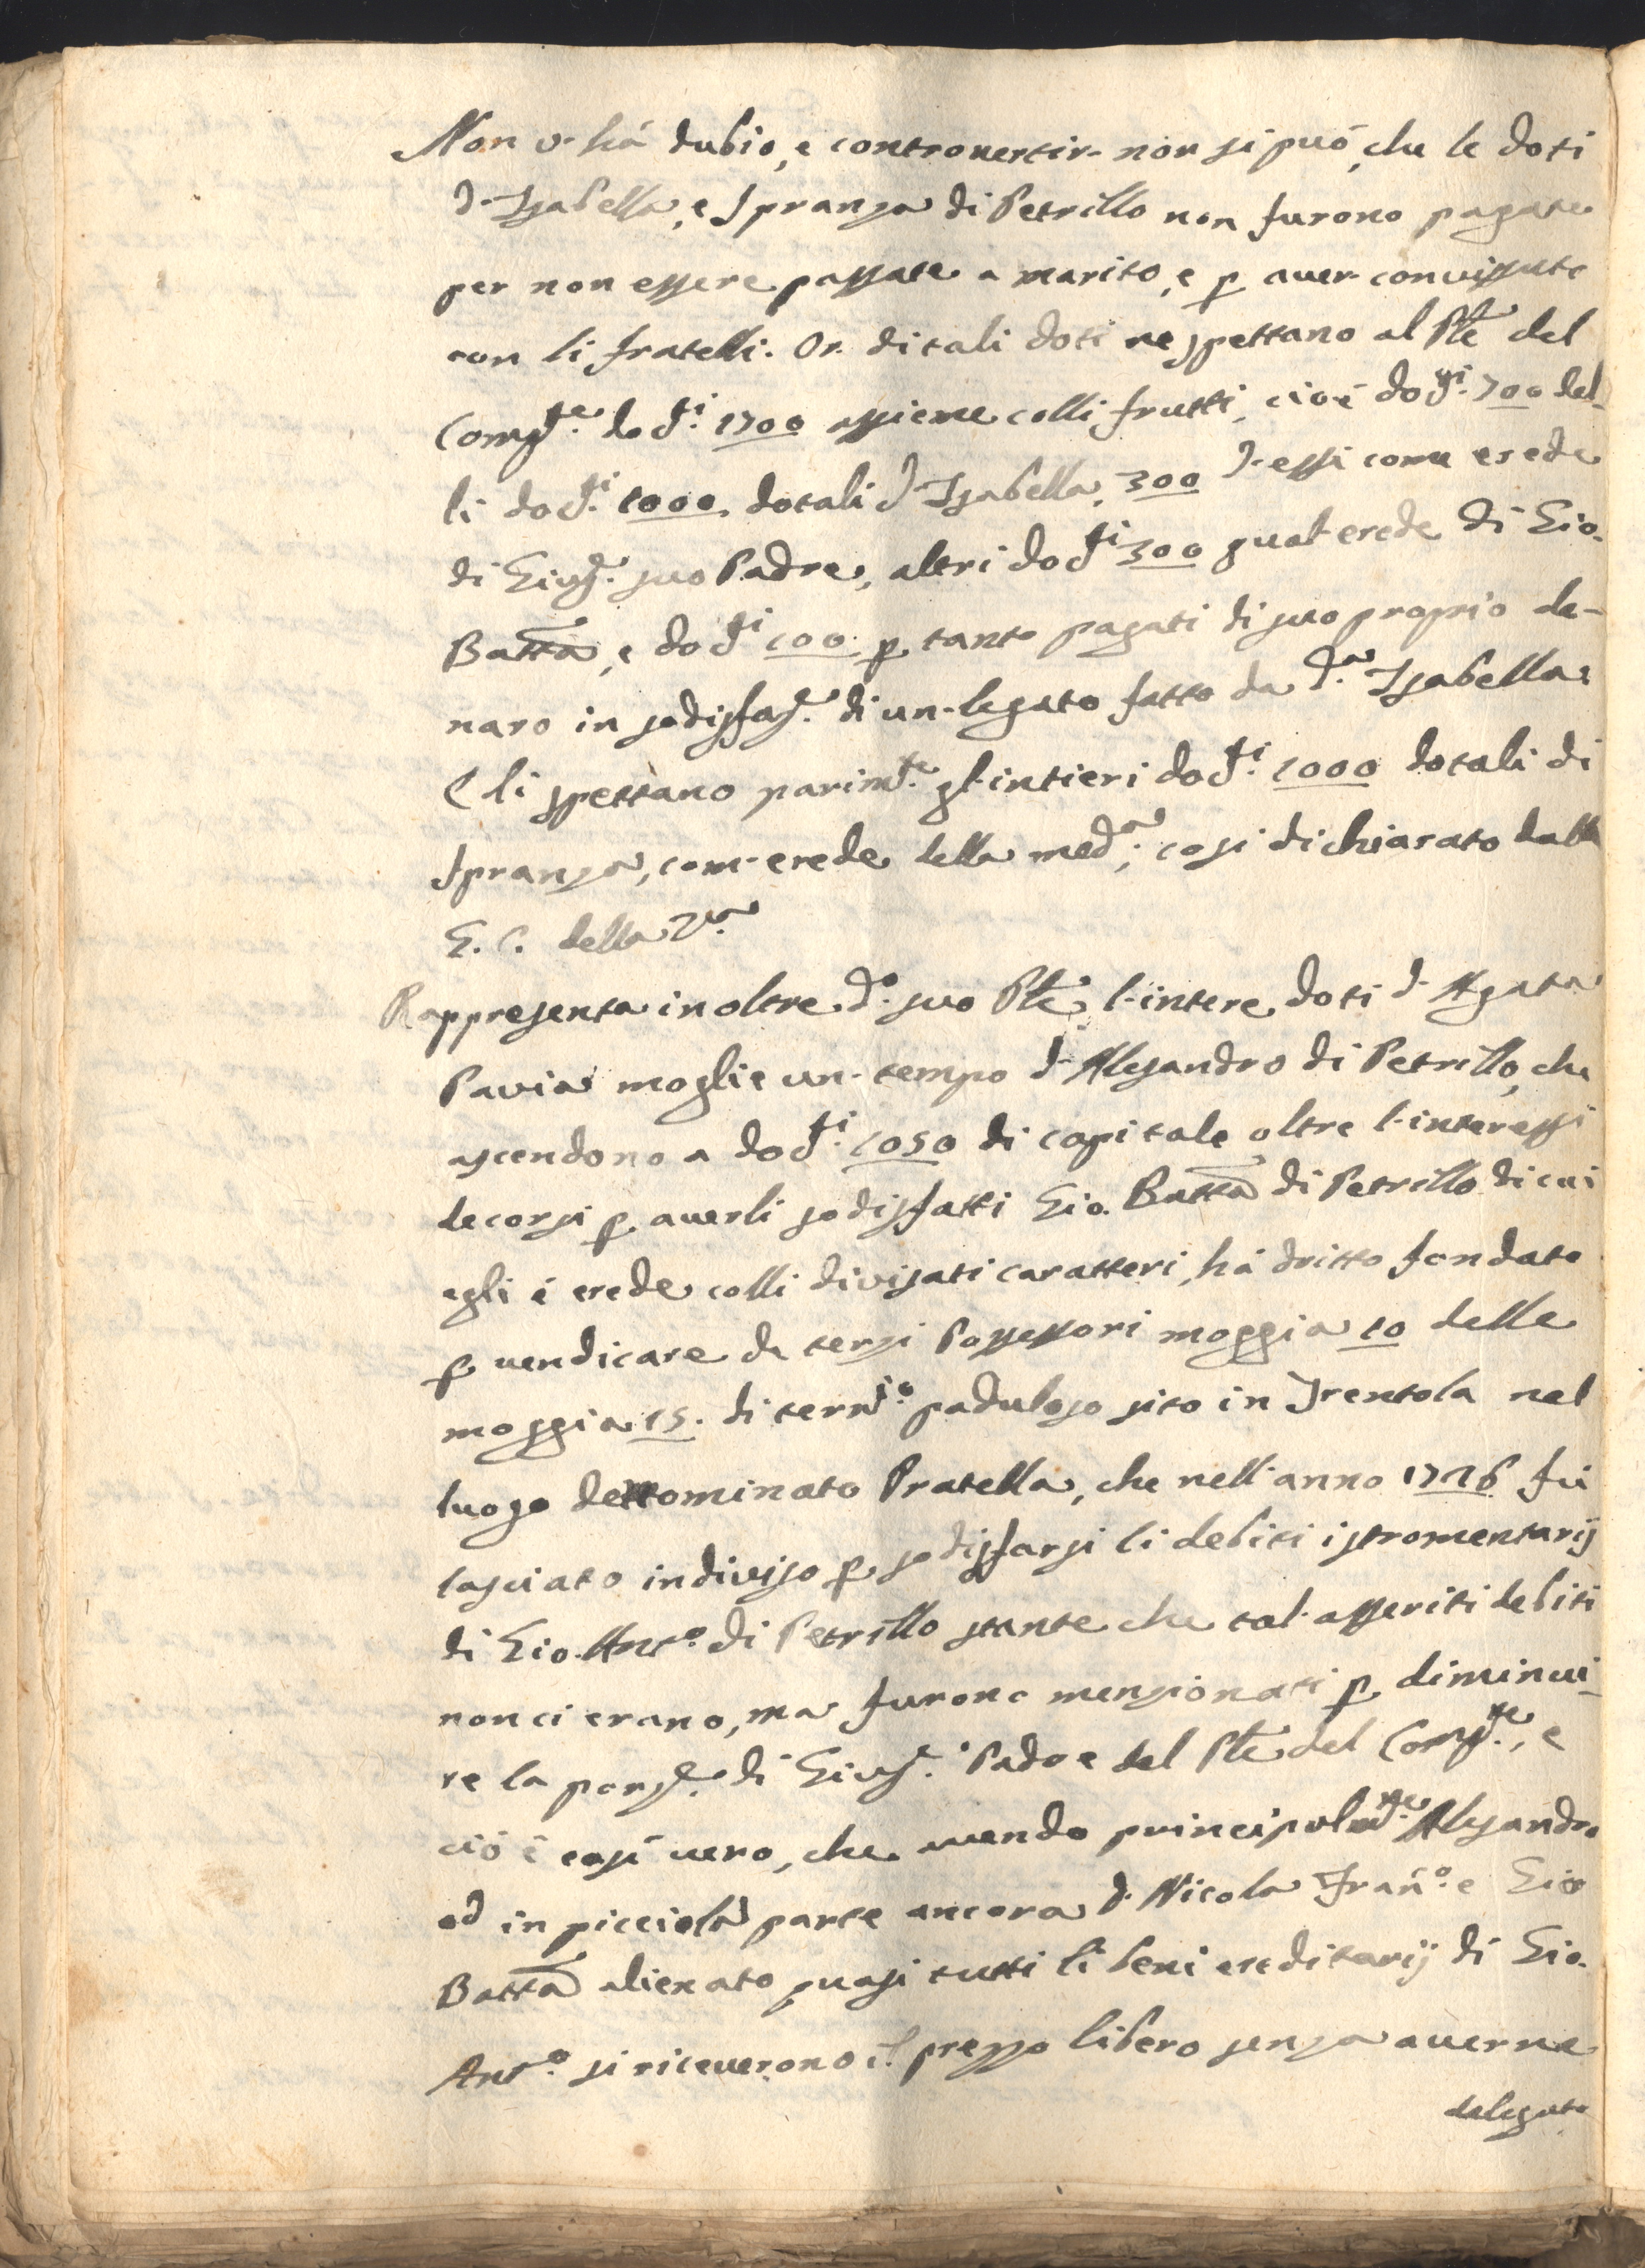 Non v'hà dubio, e controvertir non si può, che le doti
d'Isabella, e Spranza di Petrillo non furono pagate
per non essere passate a marito, e p aver convissute
con li fratelli. Or di tali doti ne spettano al Pte del
Compte docti 1700 assieme colli frutti, cioè docti 700 del-
li docti 1000 dotali d'Isabella, 300 d'essi come erede
di Giuse suo Padre, altri docti 300 qual erede di Gio.
Batta, e docti 100 p tanto pagati di suo proprio de-
naro in sodisfaze di un legato fatto da da Isabella:
E li spettano parimte gl'intieri docti 1000 dotali di
Spranza, com'erede della meda; così dichiarato dalla
G. C. della Va
Rappresenta inoltre do suo Pte l'intere doti d'Agata
Pavia moglie un tempo d'Alesandro di Petrillo, che
ascendono a docti 1050 di capitale oltre l'interessi
decorsi p averli sodisfatti Gio. Batta di Petrillo di cui
egli è erede colli divisati caratteri, hà dritto fondato
p vendicare da terzi Possessori moggia 10 delle
moggia 15. di territo paduloso sito in Trentola nel
luogo denominato Pratella, che nell'anno 1716 fù
lasciato indiviso p sodisfarsi li debiti istromentarij
di Gio. Anto di Petrillo stante che tal'asseriti debiti
non ci erano, ma furono menzionati p diminui-
re la porze di Giuse Padre del Pte del Compte, e
ciò è così vero, che avendo principalmte Alesandro
ed in picciola parte ancora d. Nicola Frano e Gio
Batta alienato quasi tutti li beni ereditarij di Gio.
Anto si riceverono il prezzo libero senza averne
delegato